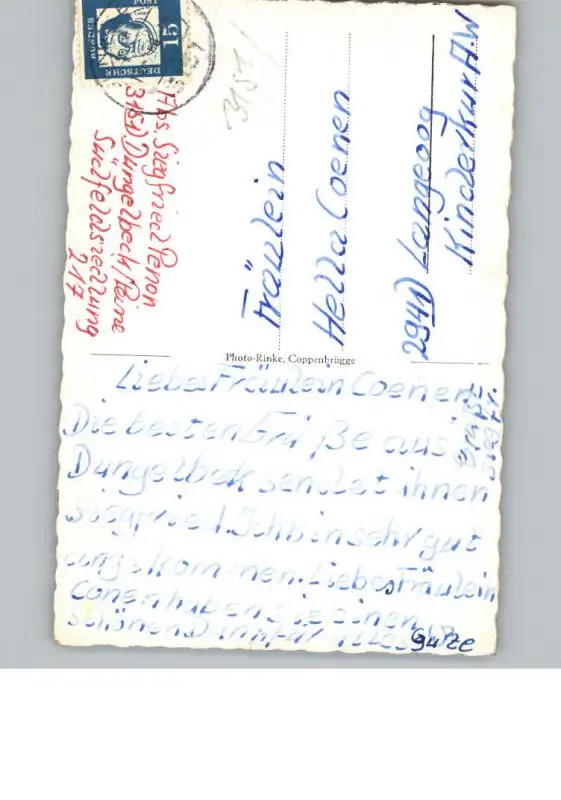 DEUTSCHE
BUNDES
POST
15
3151
Abs. Siegfried
3151) Dungelbeck/Peine
Südfeldsiedlung
217
Fräulein
Hella Coenen
2941) Langeoog
Kinderkur A.W
Photo-Rinke, Coppenbrügge
Liebes Fräulein Coenen.
Die besten Grüße aus
Dungelbek sendet ihnen
Siegfried. Ich bin sehr gut
angekommen. Liebes Fräulein
Conen haben sie einen
schönen Dank für alles
gute